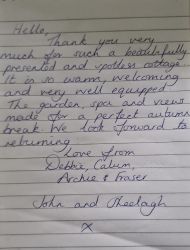 Hello,
Thank you very
much for such a beautifully
presented and spotless cottage.
It is so warm, welcoming
and very well equipped.
The garden, spa and views
made for a perfect autumn
break. We look forward to
returning.
Love from
Debbie, Calum,
Archie & Fraser
John and Sheelagh
X